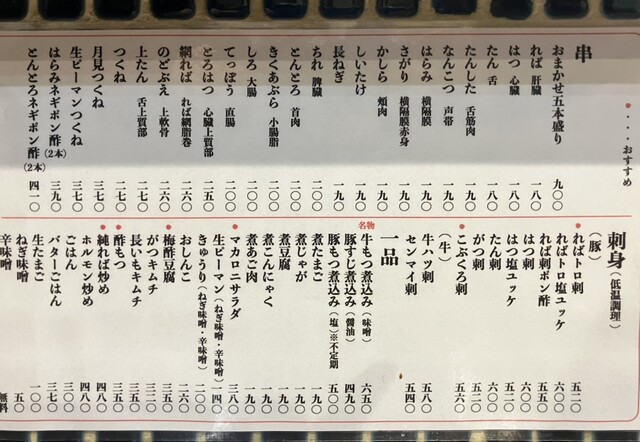 ●・・・・おすすめ
串
おまかせ五本盛り 九〇〇
れば 肝臓 一八〇
はつ 心臓 一八〇
たん 舌 一八〇
たんした 舌筋肉 一九〇
なんこつ 声帯 一九〇
はらみ 横隔膜 一九〇
さがり 横隔膜赤身 一九〇
かしら 頰肉 一九〇
しいたけ 一九〇
長ねぎ 一九〇
ちれ 脾臓 二〇〇
とんとろ 首肉 二〇〇
きくあぶら 小腸脂 二〇〇
しろ 大腸 二〇〇
てっぽう 直腸 二〇〇
とろはつ 心臓上質部 二五〇
網れば れば網脂巻 二六〇
のどぶえ 上軟骨 二六〇
上たん 舌上質部 二七〇
つくね 二七〇
月見つくね 三七〇
生ピーマンつくね 三七〇
はらみネギポン酢(2本) 三九〇
とんとろネギポン酢(2本) 四一〇
刺身(低温調理)
(豚)
●ればトロ刺 六〇〇
ればトロ塩ユッケ 六〇〇
れば刺ポン酢 五五〇
はつ刺 五〇〇
はつ塩ユッケ 五二〇
たん刺 六〇〇
がつ刺 五二〇
●こぶくろ刺 五六〇
(牛)
牛ハツ刺 五八〇
センマイ刺 五四〇
一品
名物 牛もつ煮込み(味噌) 六五〇
豚すじ煮込み(醤油) 四九〇
豚もつ煮込み(塩)※不定期 五〇〇
煮たまご 一九〇
煮じゃが 一九〇
煮豆腐 一九〇
煮こんにゃく 一九〇
煮あご肉 一九〇
●マカロニサラダ 三八〇
生ピーマン(ねぎ味噌・辛味噌) 一四〇
きゅうり(ねぎ味噌・辛味噌) 二〇〇
おしんこ 二六〇
●梅酢豆腐 三五〇
がつキムチ 三二〇
長いもキムチ 三五〇
●酢もつ 三五〇
●純れば炒め 四八〇
ホルモン炒め 四八〇
ごはん 三〇〇
バターごはん 三七〇
生たまご 一〇〇
ねぎ味噌 五〇
辛味噌 無料